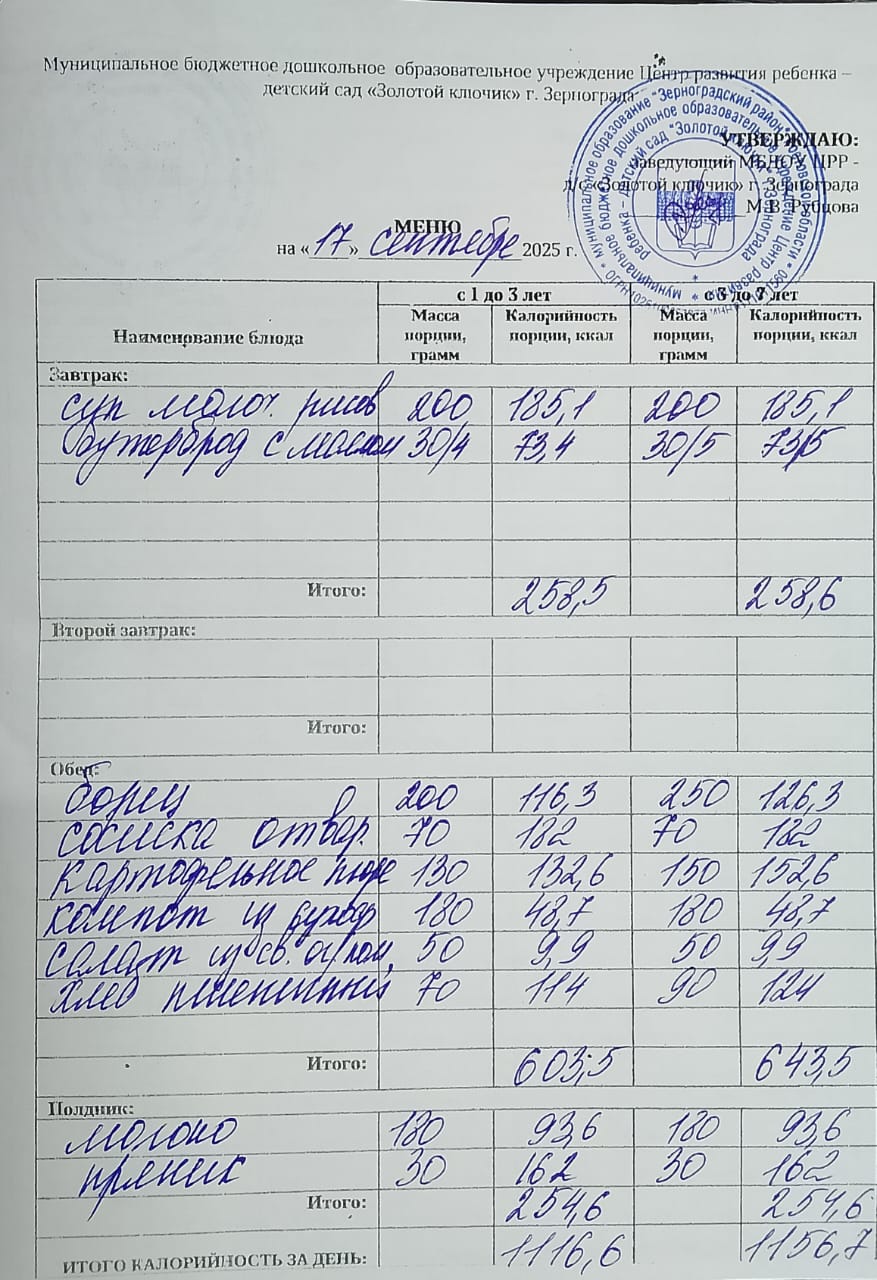 Муниципальное бюджетное дошкольное образовательное учреждение Центр развития ребенка –
детский сад «Золотой ключик» г. Зернограда
УТВЕРЖДАЮ:
Заведующий МБДОУ ЦРР -
д/с «Золотой ключик» г. Зернограда
М.В. Рубцова
МЕНЮ
на «17» сентебре 2025 г.
Наименование блюда с 1 до 3 лет с 3 до 7 лет
Масса порции, грамм Калорийность порции, ккал Масса порции, грамм Калорийность порции, ккал
Завтрак:
суп молоч. рисов 200 185,1 200 185,1
бутерброд с маслом 30/4 73,4 30/5 73,5
Итого: 258,5 258,6
Второй завтрак:
Итого:
Обед:
борщ 200 116,3 250 126,3
сосиска отвар. 70 182 70 182
картофельное пюре 130 132,6 150 152,6
компот из сухофр 180 48,7 180 48,7
салат из св. ог/пом. 50 9,9 50 9,9
хлеб пшеничный 70 114 90 124
Итого: 603,5 643,5
Полдник:
молоко 180 93,6 180 93,6
пряник 30 162 30 162
Итого: 254,6 254,6
ИТОГО КАЛОРИЙНОСТЬ ЗА ДЕНЬ: 1116,6 1156,7